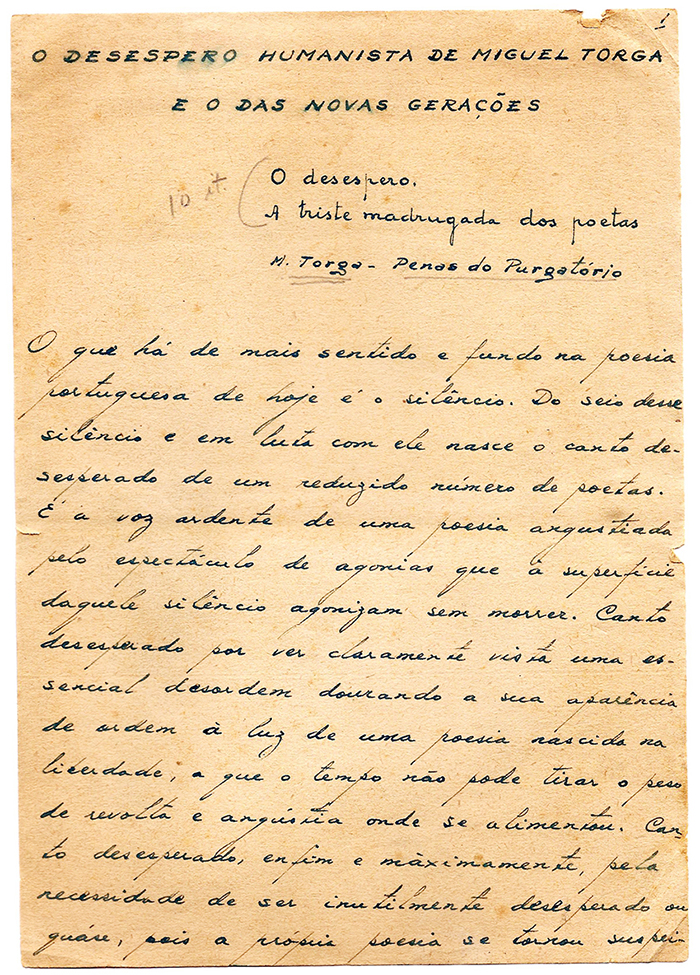 1
O DESESPERO HUMANISTA DE MIGUEL TORGA
E O DAS NOVAS GERAÇÕES
10 it.
O desespero.
A triste madrugada dos poetas
M. Torga - Penas do Purgatório
O que há de mais sentido e fundo na poesia
portuguesa de hoje é o silêncio. Do seio desse
silêncio e em luta com ele nasce o canto de-
sesperado de um reduzido número de poetas.
É a voz ardente de uma poesia angustiada
pelo espectáculo de agonias que à superfície
daquele silêncio agonizam sem morrer. Canto
desesperado por ver claramente vista uma es-
sencial desordem dourando a sua aparência
de ordem à luz de uma poesia nascida na
liberdade, a que o tempo não pode tirar o peso
de revolta e angústia onde se alimentou. Can-
to desesperado, enfim e màximamente, pela
necessidade de ser inutilmente desesperado ou
quáse, pois a própria poesia se tornou suspei-